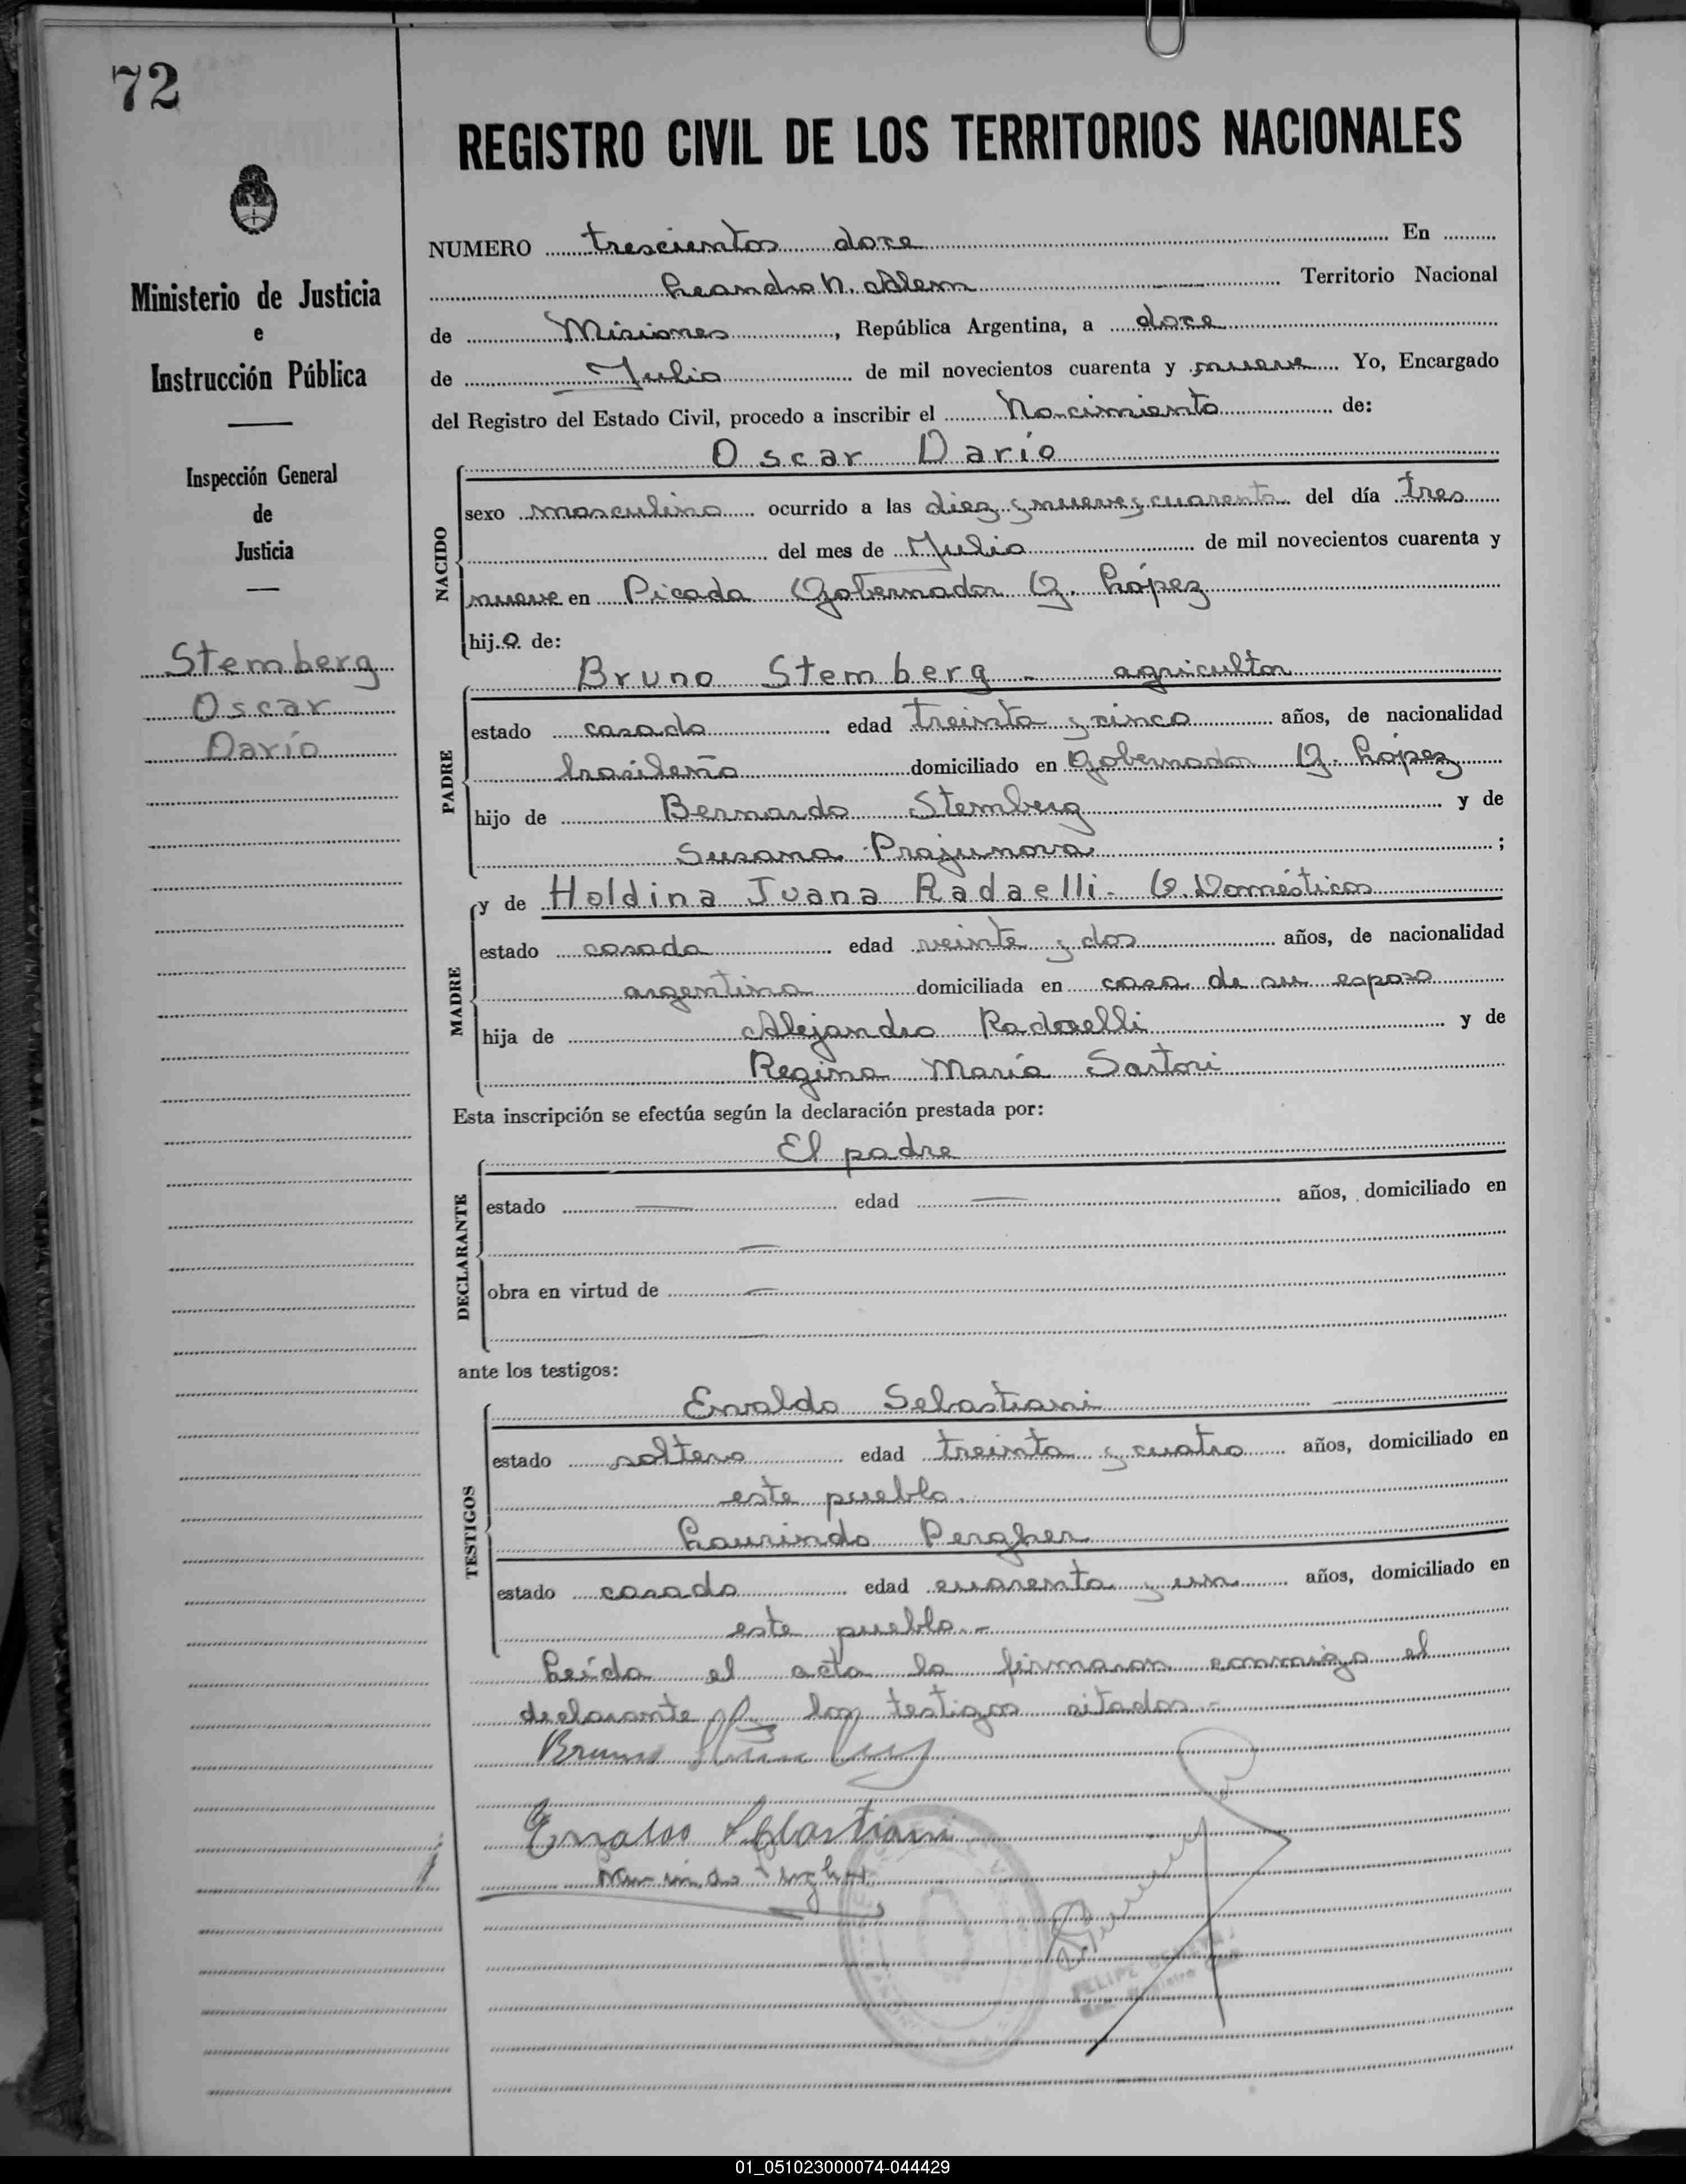 72
REGISTRO CIVIL DE LOS TERRITORIOS NACIONALES
Ministerio de Justicia
e
Instrucción Pública
Inspección General
de
Justicia
Stemberg
Oscar
Darío
NUMERO trescientos doce En
Leandro N. Alem Territorio Nacional
de Misiones, República Argentina, a doce
de Julio de mil novecientos cuarenta y nueve Yo, Encargado
del Registro del Estado Civil, procedo a inscribir el Nacimiento de:
NACIDO
Oscar Darío
sexo masculino ocurrido a las diez y nueve y cuarenta del día tres
del mes de Julio de mil novecientos cuarenta y
nueve en Picada Gobernador G. López
hijo de:
PADRE
Bruno Stemberg - agricultor
estado casado edad treinta y cinco años, de nacionalidad
brasileña domiciliado en Gobernador G. López
hijo de Bernardo Stemberg y de
Susana Prajunova;
MADRE
y de Holdina Juana Radaelli - Q. Domésticos
estado casada edad veinte y dos años, de nacionalidad
argentina domiciliada en casa de su esposo
hija de Alejandro Radaelli y de
Regina María Sartori
Esta inscripción se efectúa según la declaración prestada por:
DECLARANTE
El padre
estado — edad — años, domiciliado en
—
obra en virtud de —
—
ante los testigos:
TESTIGOS
Ervaldo Sebastiani
estado soltero edad treinta y cuatro años, domiciliado en
este pueblo
Laurindo Pergher
estado casado edad cuarenta y un años, domiciliado en
este pueblo.-
Leída el acta la firmaron conmigo el
declarante y los testigos citados.-
Bruno
Ervaldo Sebastiani
FELIPE
01_051023000074-044429